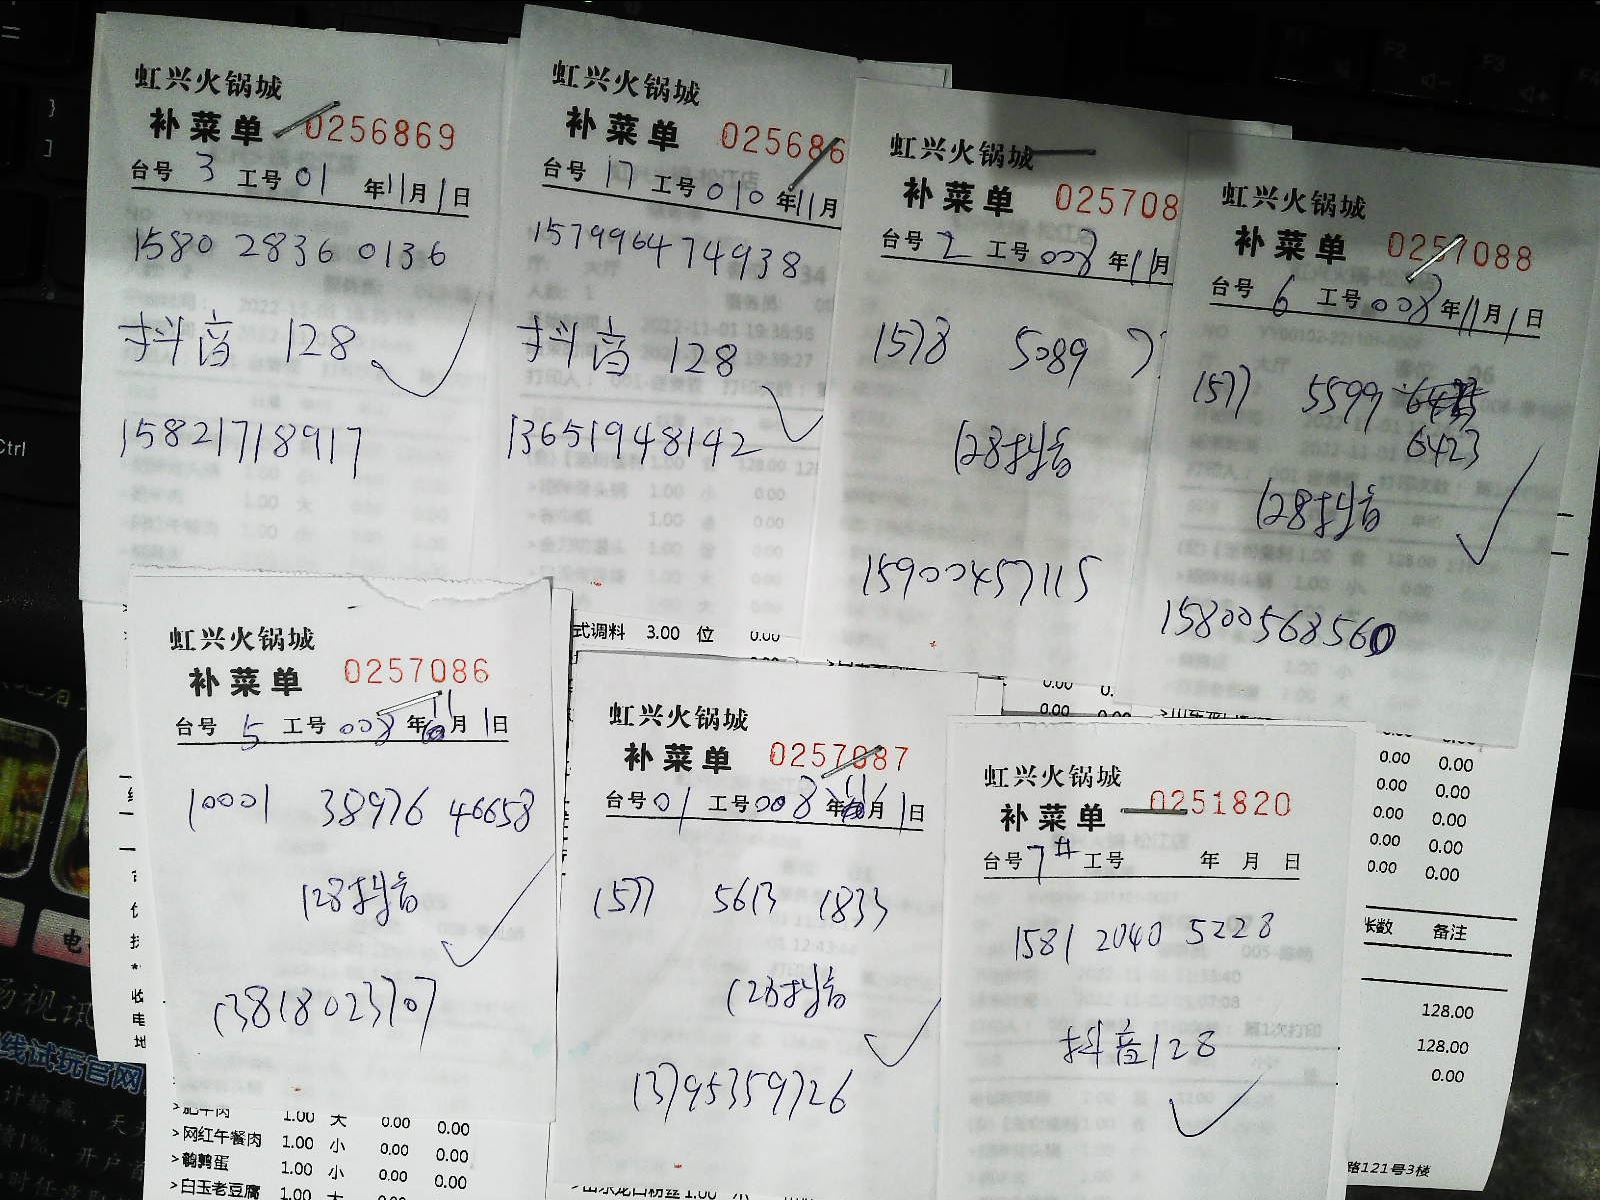 虹兴火锅城
补菜单 0256869
台号 3 工号 01 年11月1日
1580 2836 0136
抖音 128
15821718917
虹兴火锅城
补菜单 025686
台号 17 工号 010 年11月
157996474938
抖音 128
13651948142
虹兴火锅城
补菜单 025708
台号 2 工号 008 年11月
1578 5089
128抖音
15900457115
虹兴火锅城
补菜单 0257088
台号 6 工号 008 年11月1日
1577 5599
6423
128抖音
15800568560
式调料 3.00 位 0.00
虹兴火锅城
补菜单 0257086
台号 5 工号 008 年11月1日
10001 38976 46658
128抖音
13818023707
>肥牛肉 1.00 大 0.00 0.00
>网红午餐肉 1.00 小 0.00 0.00
>鹌鹑蛋 1.00 小 0.00 0.00
>白玉老豆腐 1.00 大 0.00 0.00
虹兴火锅城
补菜单 0257087
台号 01 工号 008 年 月1日
1577 5613 1833
128抖音
13795359726
虹兴火锅城
补菜单 0251820
台号 7# 工号 年 月 日
1581 2040 5228
抖音128
0.00 0.00
0.00 0.00
0.00 0.00
0.00 0.00
0.00 0.00
张数 备注
128.00
128.00
0.00
路121号3楼
线试玩官网
Ctrl